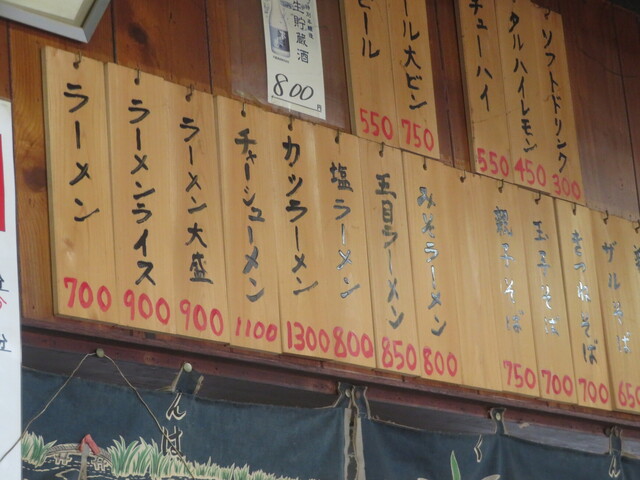 生貯蔵酒
800円
ビール
550
ール大ビン
750
チューハイ
550
タルハイレモン
450
ソフトドリンク
300
ラーメン
700
ラーメンライス
900
ラーメン大盛
900
チャーシューメン
1100
カツラーメン
1300
塩ラーメン
800
五目ラーメン
850
みそラーメン
800
親子そば
750
玉子そば
700
きつねそば
700
ザルそば
650